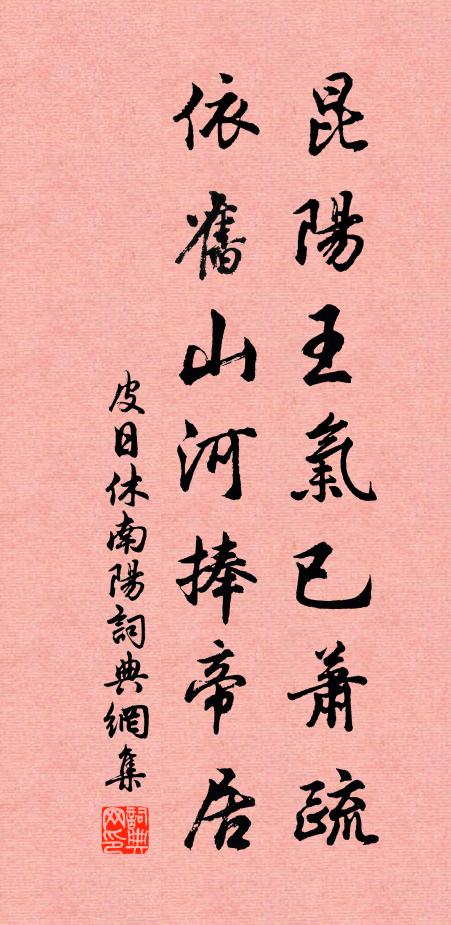 昆陽王氣已蕭疏
依舊山河捧帝居
皮日休南陽詞典網集
詞典网印